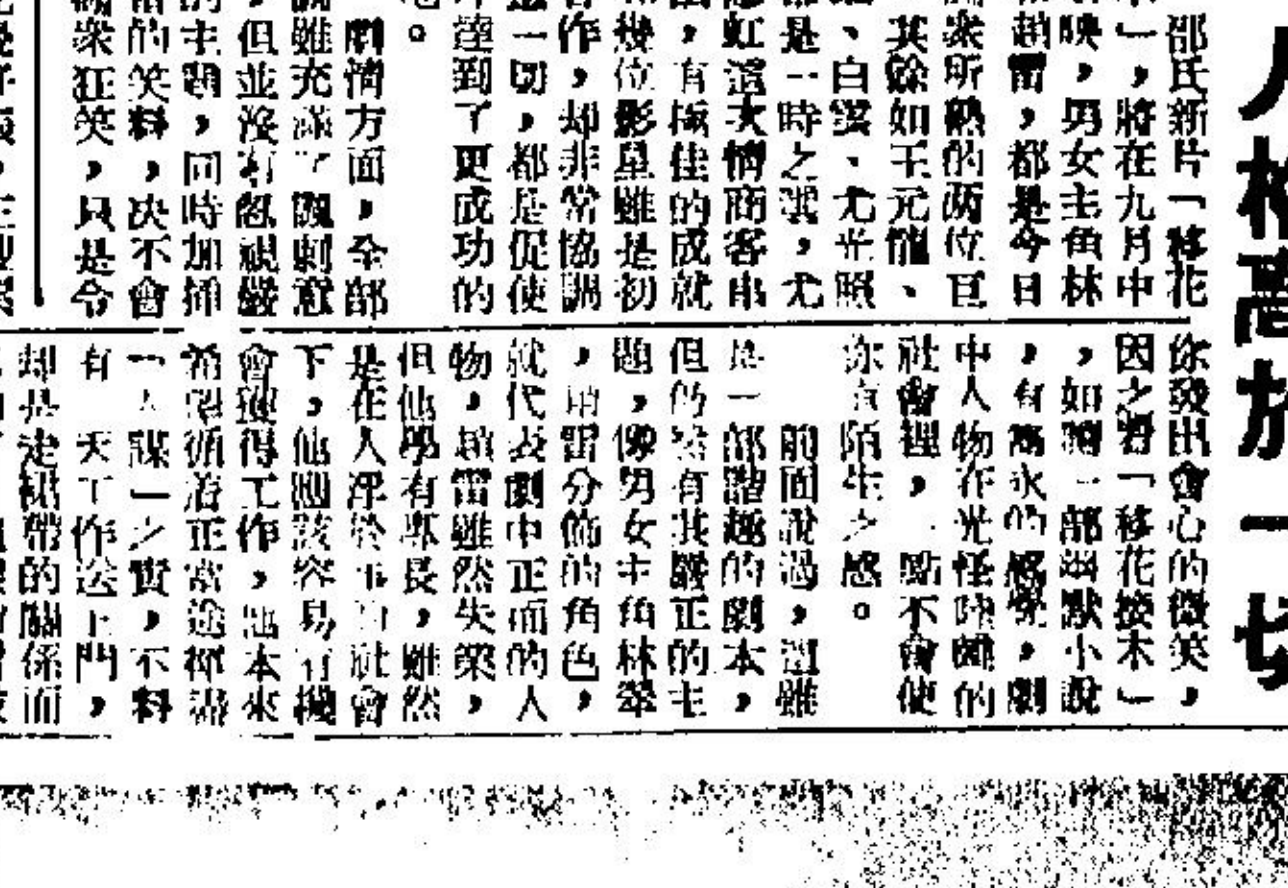 人格高於一切
邵氏新片「移花
木」，將在九月中
映，男女主角林
趙雷，都是今日
衆所熟的兩位巨
其餘如王元龍、
、白雲、尤光照
都是一時之選，尤
虹這次情商客串
，有極佳的成就
幾位影星雖是初
合作，却非常協調
一切，都是促使
達到了更成功的
。
劇情方面，全部
雖充滿了諷刺意
但並沒有忽視嚴
的主題，同時加插
的笑料，決不會
衆狂笑，只是令
你發出會心的微笑，
因之看「移花接木」
，如讀一部幽默小說
，有雋永的感覺，劇
中人物在光怪陸離的
社會裡，一點不會使
你有陌生之感。
前面說過，這雖
是一部諧趣的劇本，
但仍然有其嚴正的主
題，像男女主角林翠
，趙雷分飾的角色，
就代表劇中正面的人
物，趙雷雖然失業，
但他學有專長，雖然
是在人浮於事的社會
下，他應該容易有機
會獲得工作，他本來
希望循着正常途徑
人謀」之實，不料
有一天工作送上門，
却是走裙帶的關係而